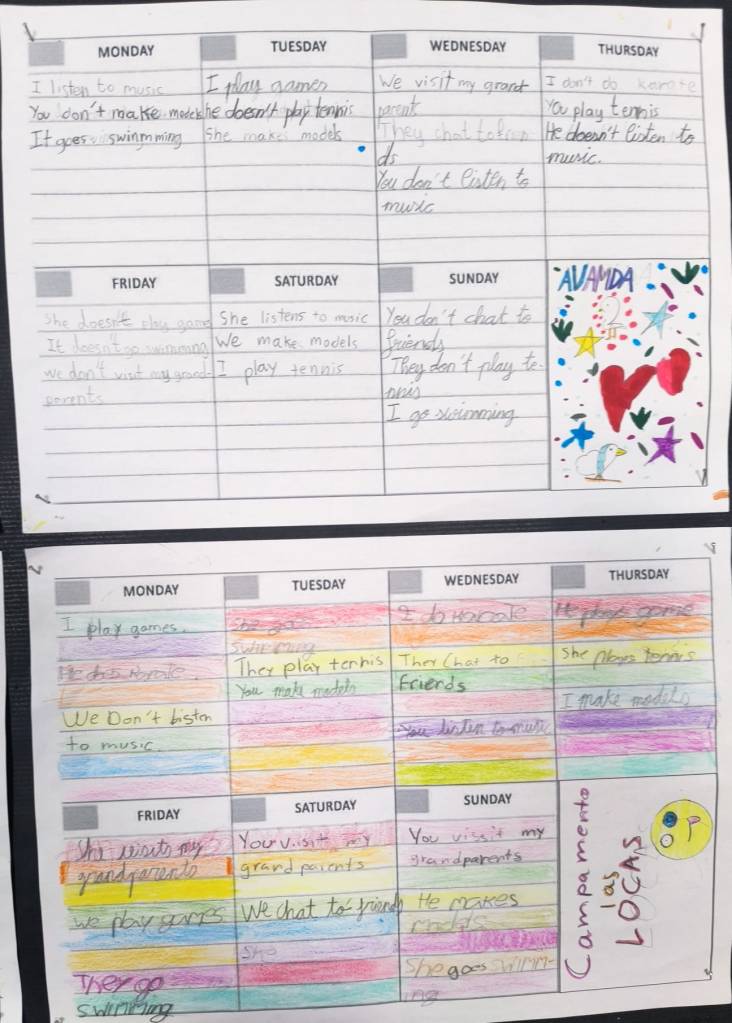 MONDAY
I listen to music
You don't make models
It goes swimming
TUESDAY
I play games
he doesn't play tennis
She makes models
WEDNESDAY
We visit my grand
parents
They chat to frien
ds
You don't listen to
music
THURSDAY
I don't do karate
You play tennis
He doesn't listen to
music.
FRIDAY
She doesn't play game
It doesn't go swimming
we don't visit my grand-
parents
SATURDAY
She listens to music
We make models
I play tennis
SUNDAY
You don't chat to
friends
They don't play te-
nnis
I go swimming
AVAMDA
2
MONDAY
I play games.
He does Karate.
We Don't listen
to music.
TUESDAY
She goes
swimming
They play tennis
You make models
WEDNESDAY
I do Karate
They Chat to
Friends
You listen to music
THURSDAY
He plays game
She plays tennis
I make models
FRIDAY
She visits my
grandparents
We play games
They go
swimming
SATURDAY
You visit my
grandparents
We chat to friends
She
SUNDAY
You vissit my
grandparents
He makes
models
She goes swimm-
ing
Campamento
las
LOCAS